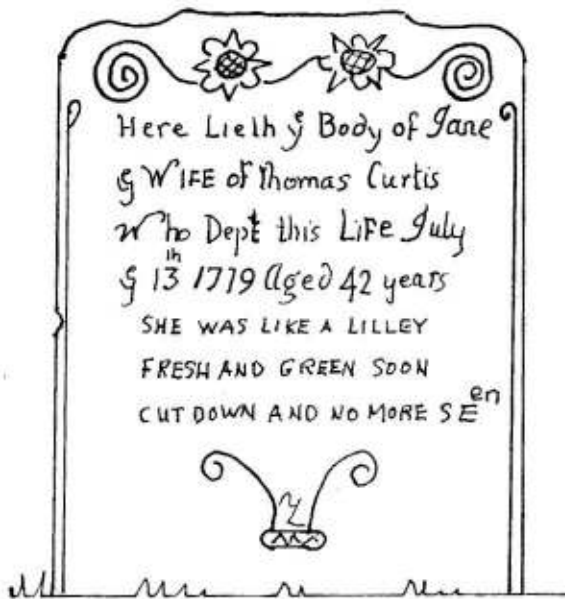 Here Lieth yᵉ Body of Jane
yᵉ WIFE of Thomas Curtis
Who Dept this LiFe July
yᵉ 13th 1779 Aged 42 years
SHE WAS LIKE A LILLEY
FRESH AND GREEN SOON
CUT DOWN AND NO MORE SEen